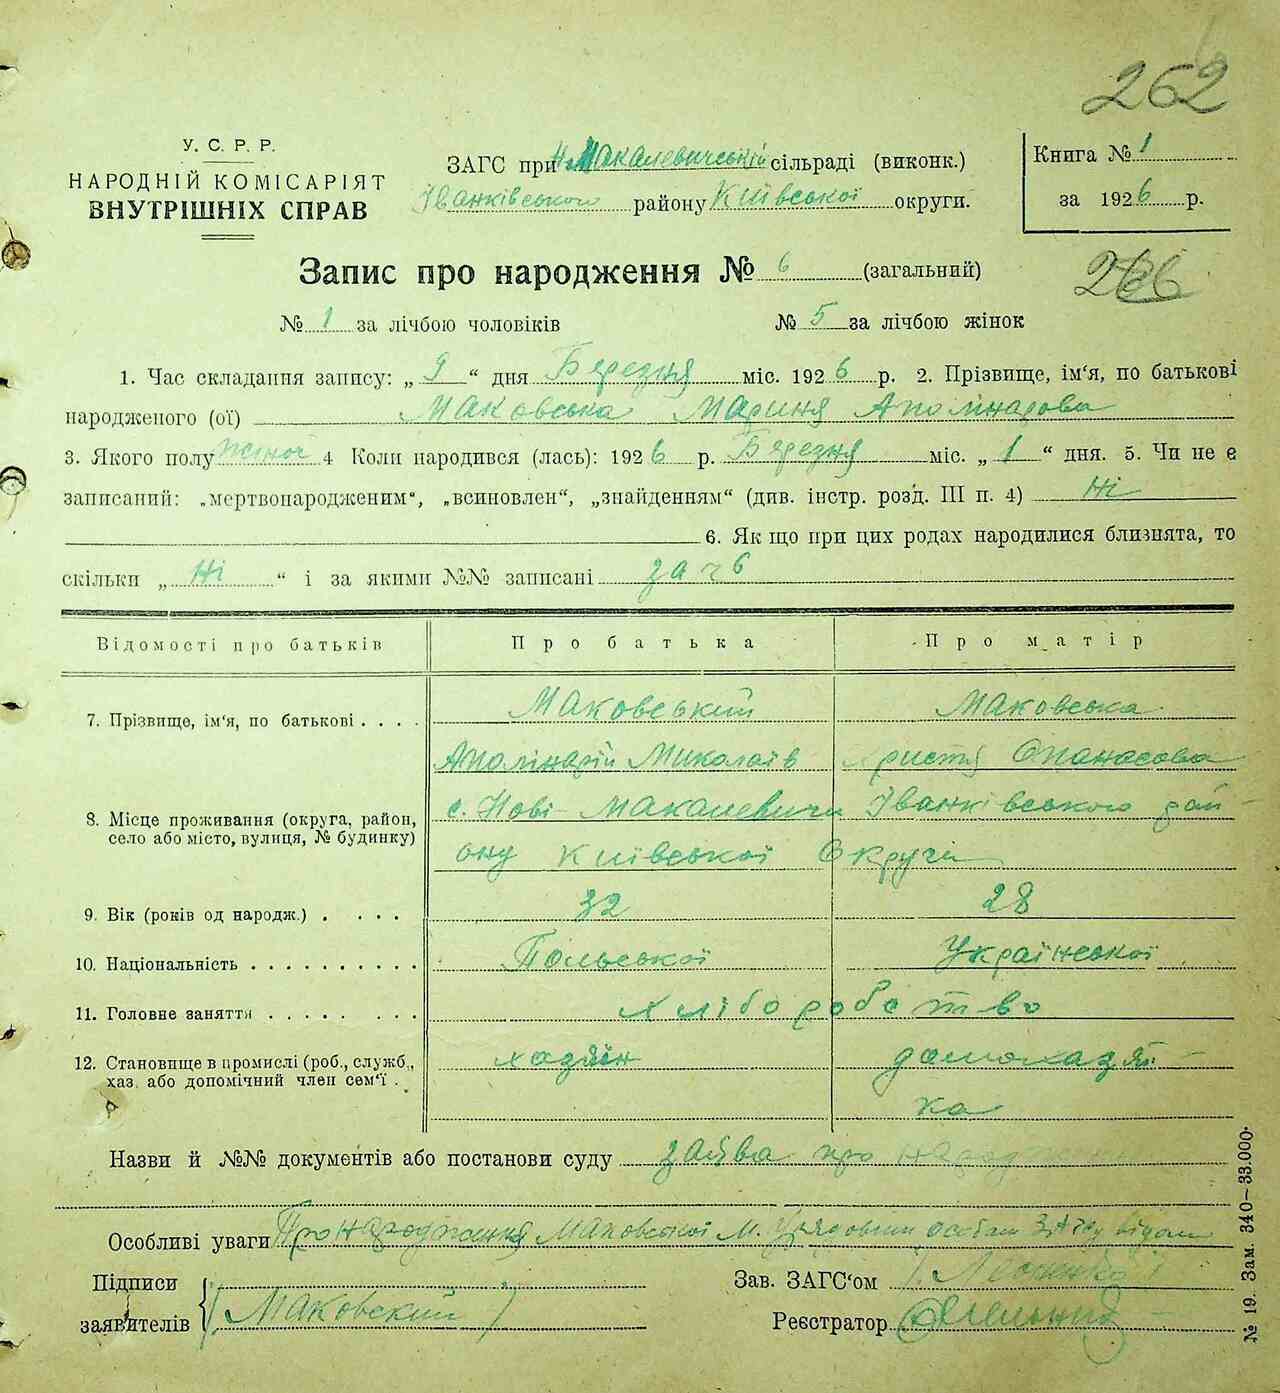 262
У. С. Р. Р.
НАРОДНІЙ КОМІСАРІЯТ
ВНУТРІШНІХ СПРАВ
ЗАГС при Н-Макалевичській сільраді (виконк.)
Іванківського району Київської округи.
Книга № 1
за 1926 р.
Запис про народження № 6 (загальний)
№ 1 за лічбою чоловіків № 5 за лічбою жінок
1. Час складання запису: „ 9 “ дня Березня міс. 1926 р. 2. Прізвище, ім'я, по батькові
народженого (ої) Маковська Мариня Аполінарова
3. Якого полу жіноч 4 Коли народився (лась): 1926 р. Березня міс. „ 1 “ дня. 5. Чи не є
записаний: „мертвонародженим“, „всиновлен“, „знайденням“ (див. інстр. розд. III п. 4) Ні
6. Як що при цих родах народилися близнята, то
скільки „ Ні “ і за якими №№ записані за ч 6
Відомості про батьків Про батька Про матір
7. Прізвище, ім'я, по батькові . . . . Маковський Маковська
Аполінарій Миколаїв Христя Опанасова
8. Місце проживання (округа, район, село або місто, вулиця, № будинку) с. Нові-Макалевичи Іванківського рай-
ону Київської Округи
9. Вік (років од народж.) . . . . 32 28
10. Національність . . . . . . . . . . Польської Української
11. Головне заняття . . . . . . . . Хліборобство
12. Становище в промислі (роб., служб., хаз. або допомічний член сем'ї . хазяїн домохазяй-
ка
Назви й №№ документів або постанови суду заява про народження
Особливі уваги Про народження Маковської М. Урядовим особам заяву
Підписи
заявителів ( Маковский )
Зав. ЗАГС'ом
Реєстратор
№ 19. Зам. 340—33.000.